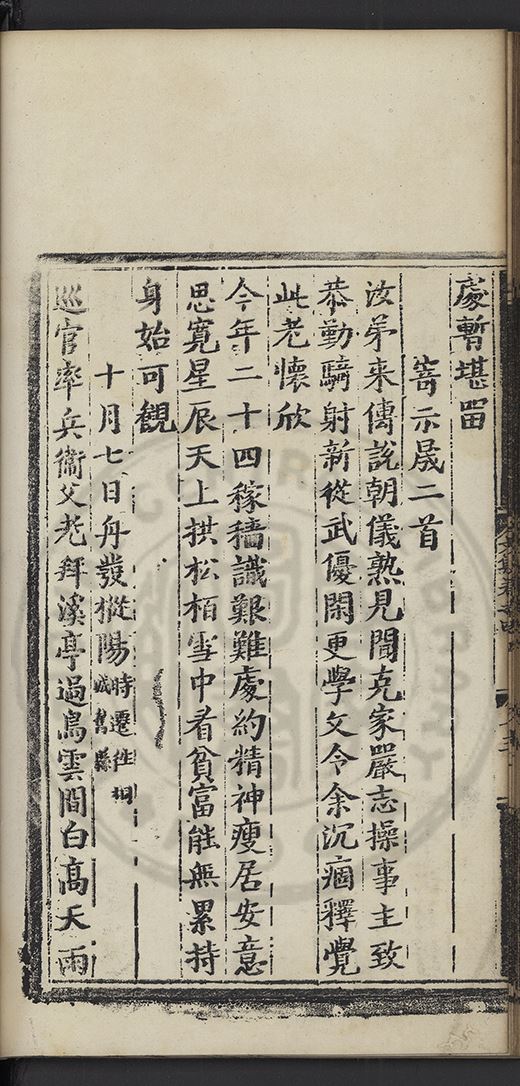 處暫堪畱
寄示晟二首
汝弟来傳說朝儀熟見聞克家嚴志操事主致
恭勤騎射新從武優閑更學文令余沉痼釋覺
此老懷欣
今年二十四稼穡識艱難處約精神瘦居安意
思寬星辰天上拱松栢雪中看貧富能無累持
身始可觀
十月七日舟發樅陽時遷徃桐城舊縣
巡官率兵衞父老拜溪亭過鳥雲間白高天雨